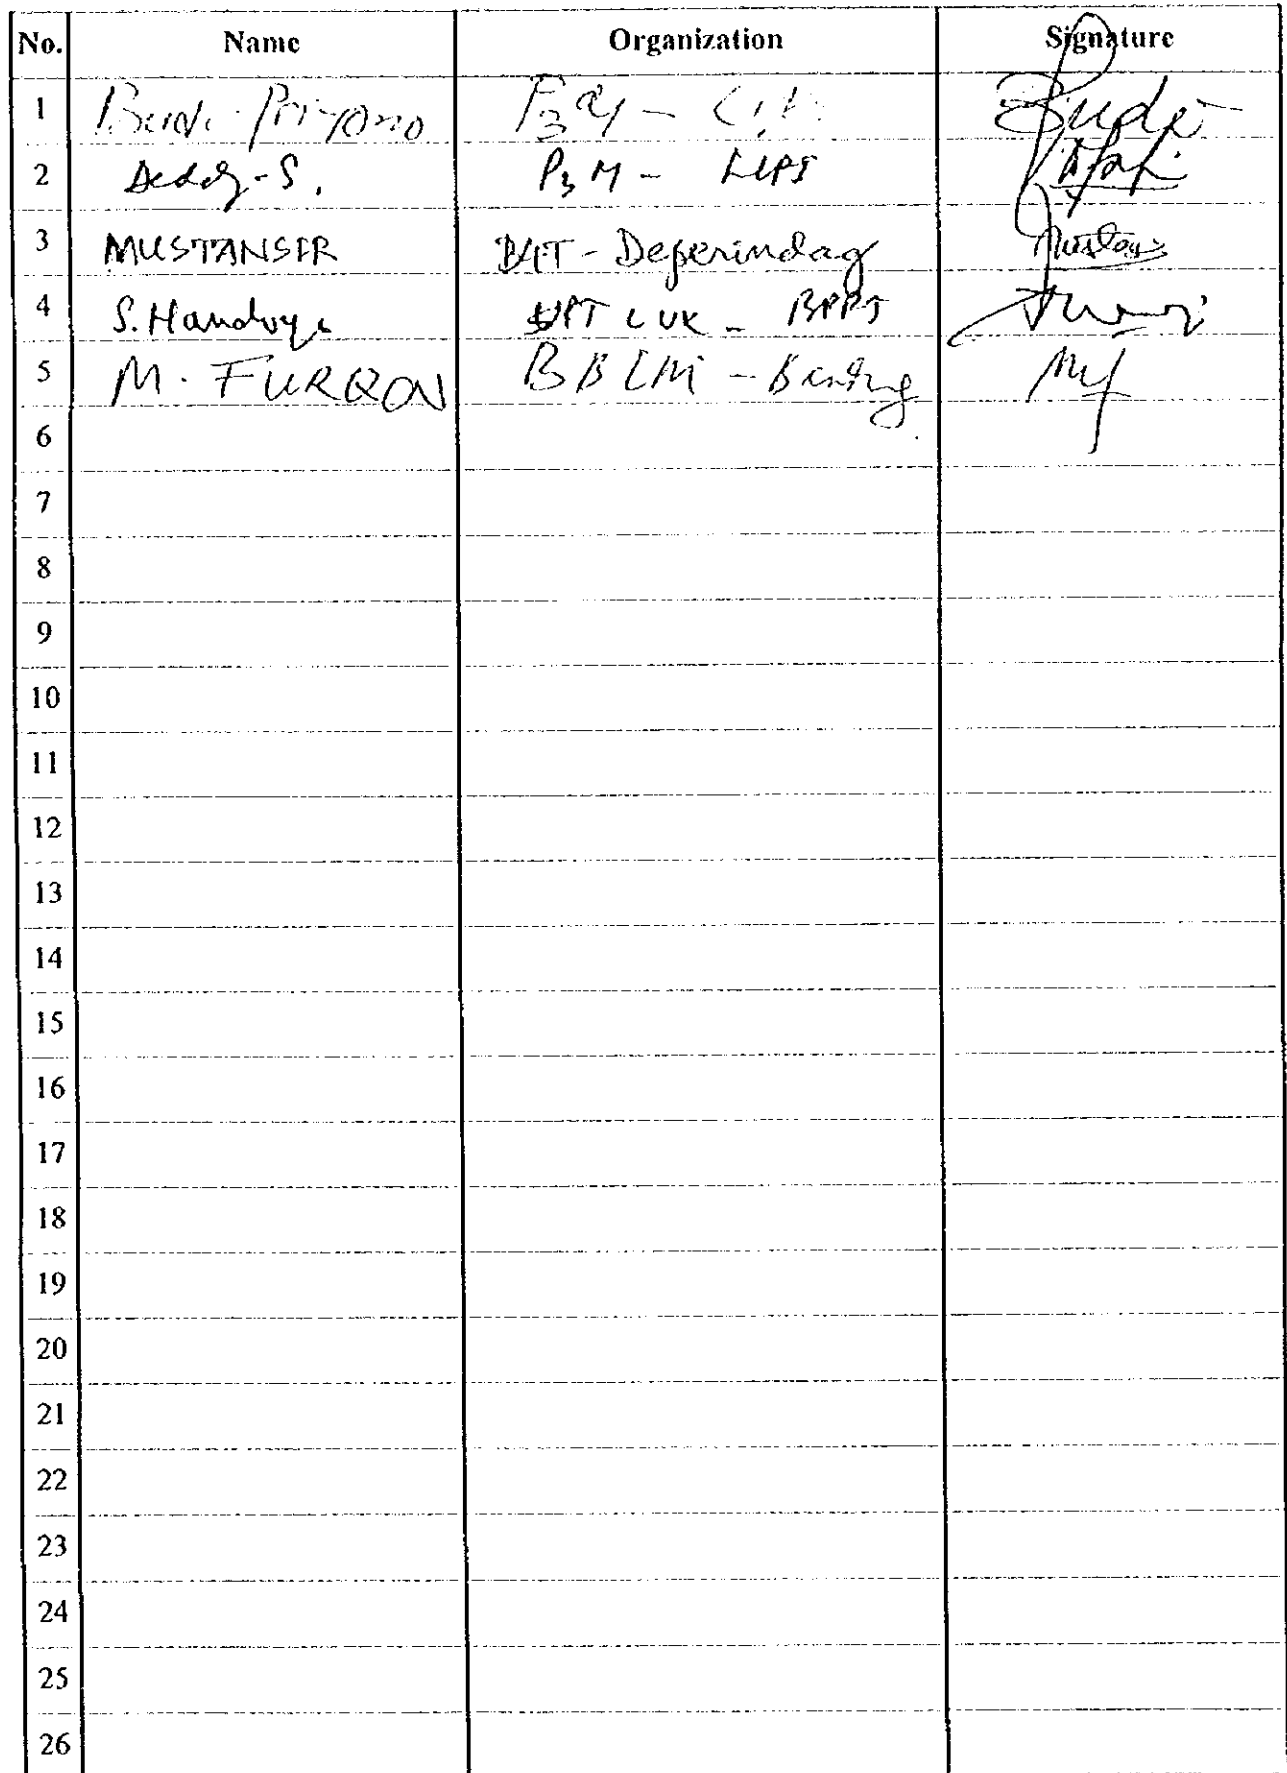 No. Name Organization Signature
1 Budi Priyono P3M - Budi
2 Deddy-S. P3M - LIPI
3 MUSTANSIR Deperindag
4 S. Handoyo UPT LUK - BPPT
5 M. FURQON BBLM - Bandung
6
7
8
9
10
11
12
13
14
15
16
17
18
19
20
21
22
23
24
25
26